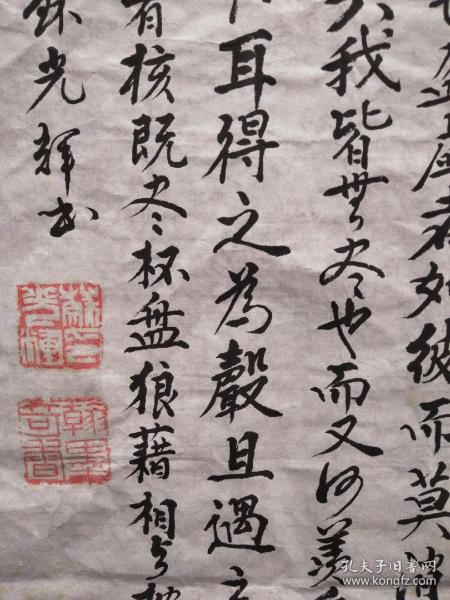 盈虛者如彼而莫消
我皆無盡也而又何羨
耳得之為聲且遇之
肴核既盡杯盤狼藉相與枕
光輝書
孔夫子旧书网
www.kongfz.com